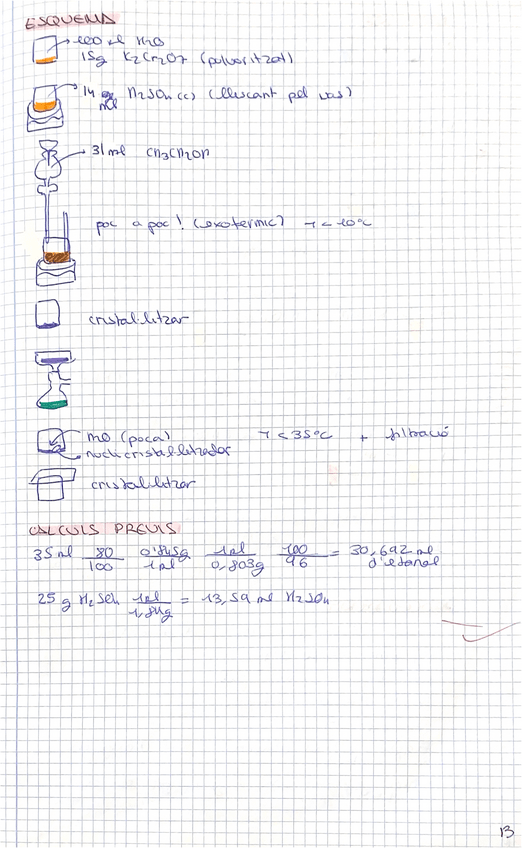 ESQUEMA
100 ml H2O
15g K2Cr2O7 (pulveritzat)
14 ml H2SO4 (c) (lliscant pel vas)
31 ml CH3CH2OH
poc a poc! (exotèrmic) T < 40°C
cristal·litzar
H2O (poca) T < 35°C + filtració
nucli cristal·litzador
cristal·litzar
CÀLCULS PREVIS
35 ml 80/100 0'845g/1ml 1ml/0,803g 100/96 = 30,692 ml
d'etanol
25 g H2SO4 1ml/1,84g = 13,59 ml H2SO4
13